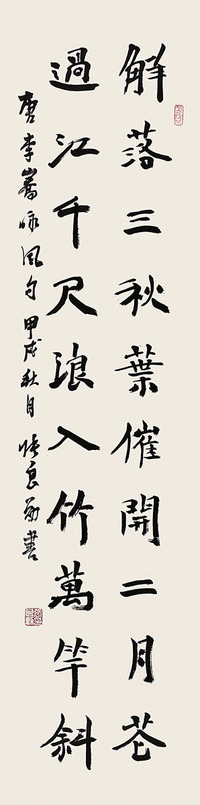 解落三秋葉催開二月花
過江千尺浪入竹萬竿斜
唐李嶠咏風句甲戌秋月張良勛書